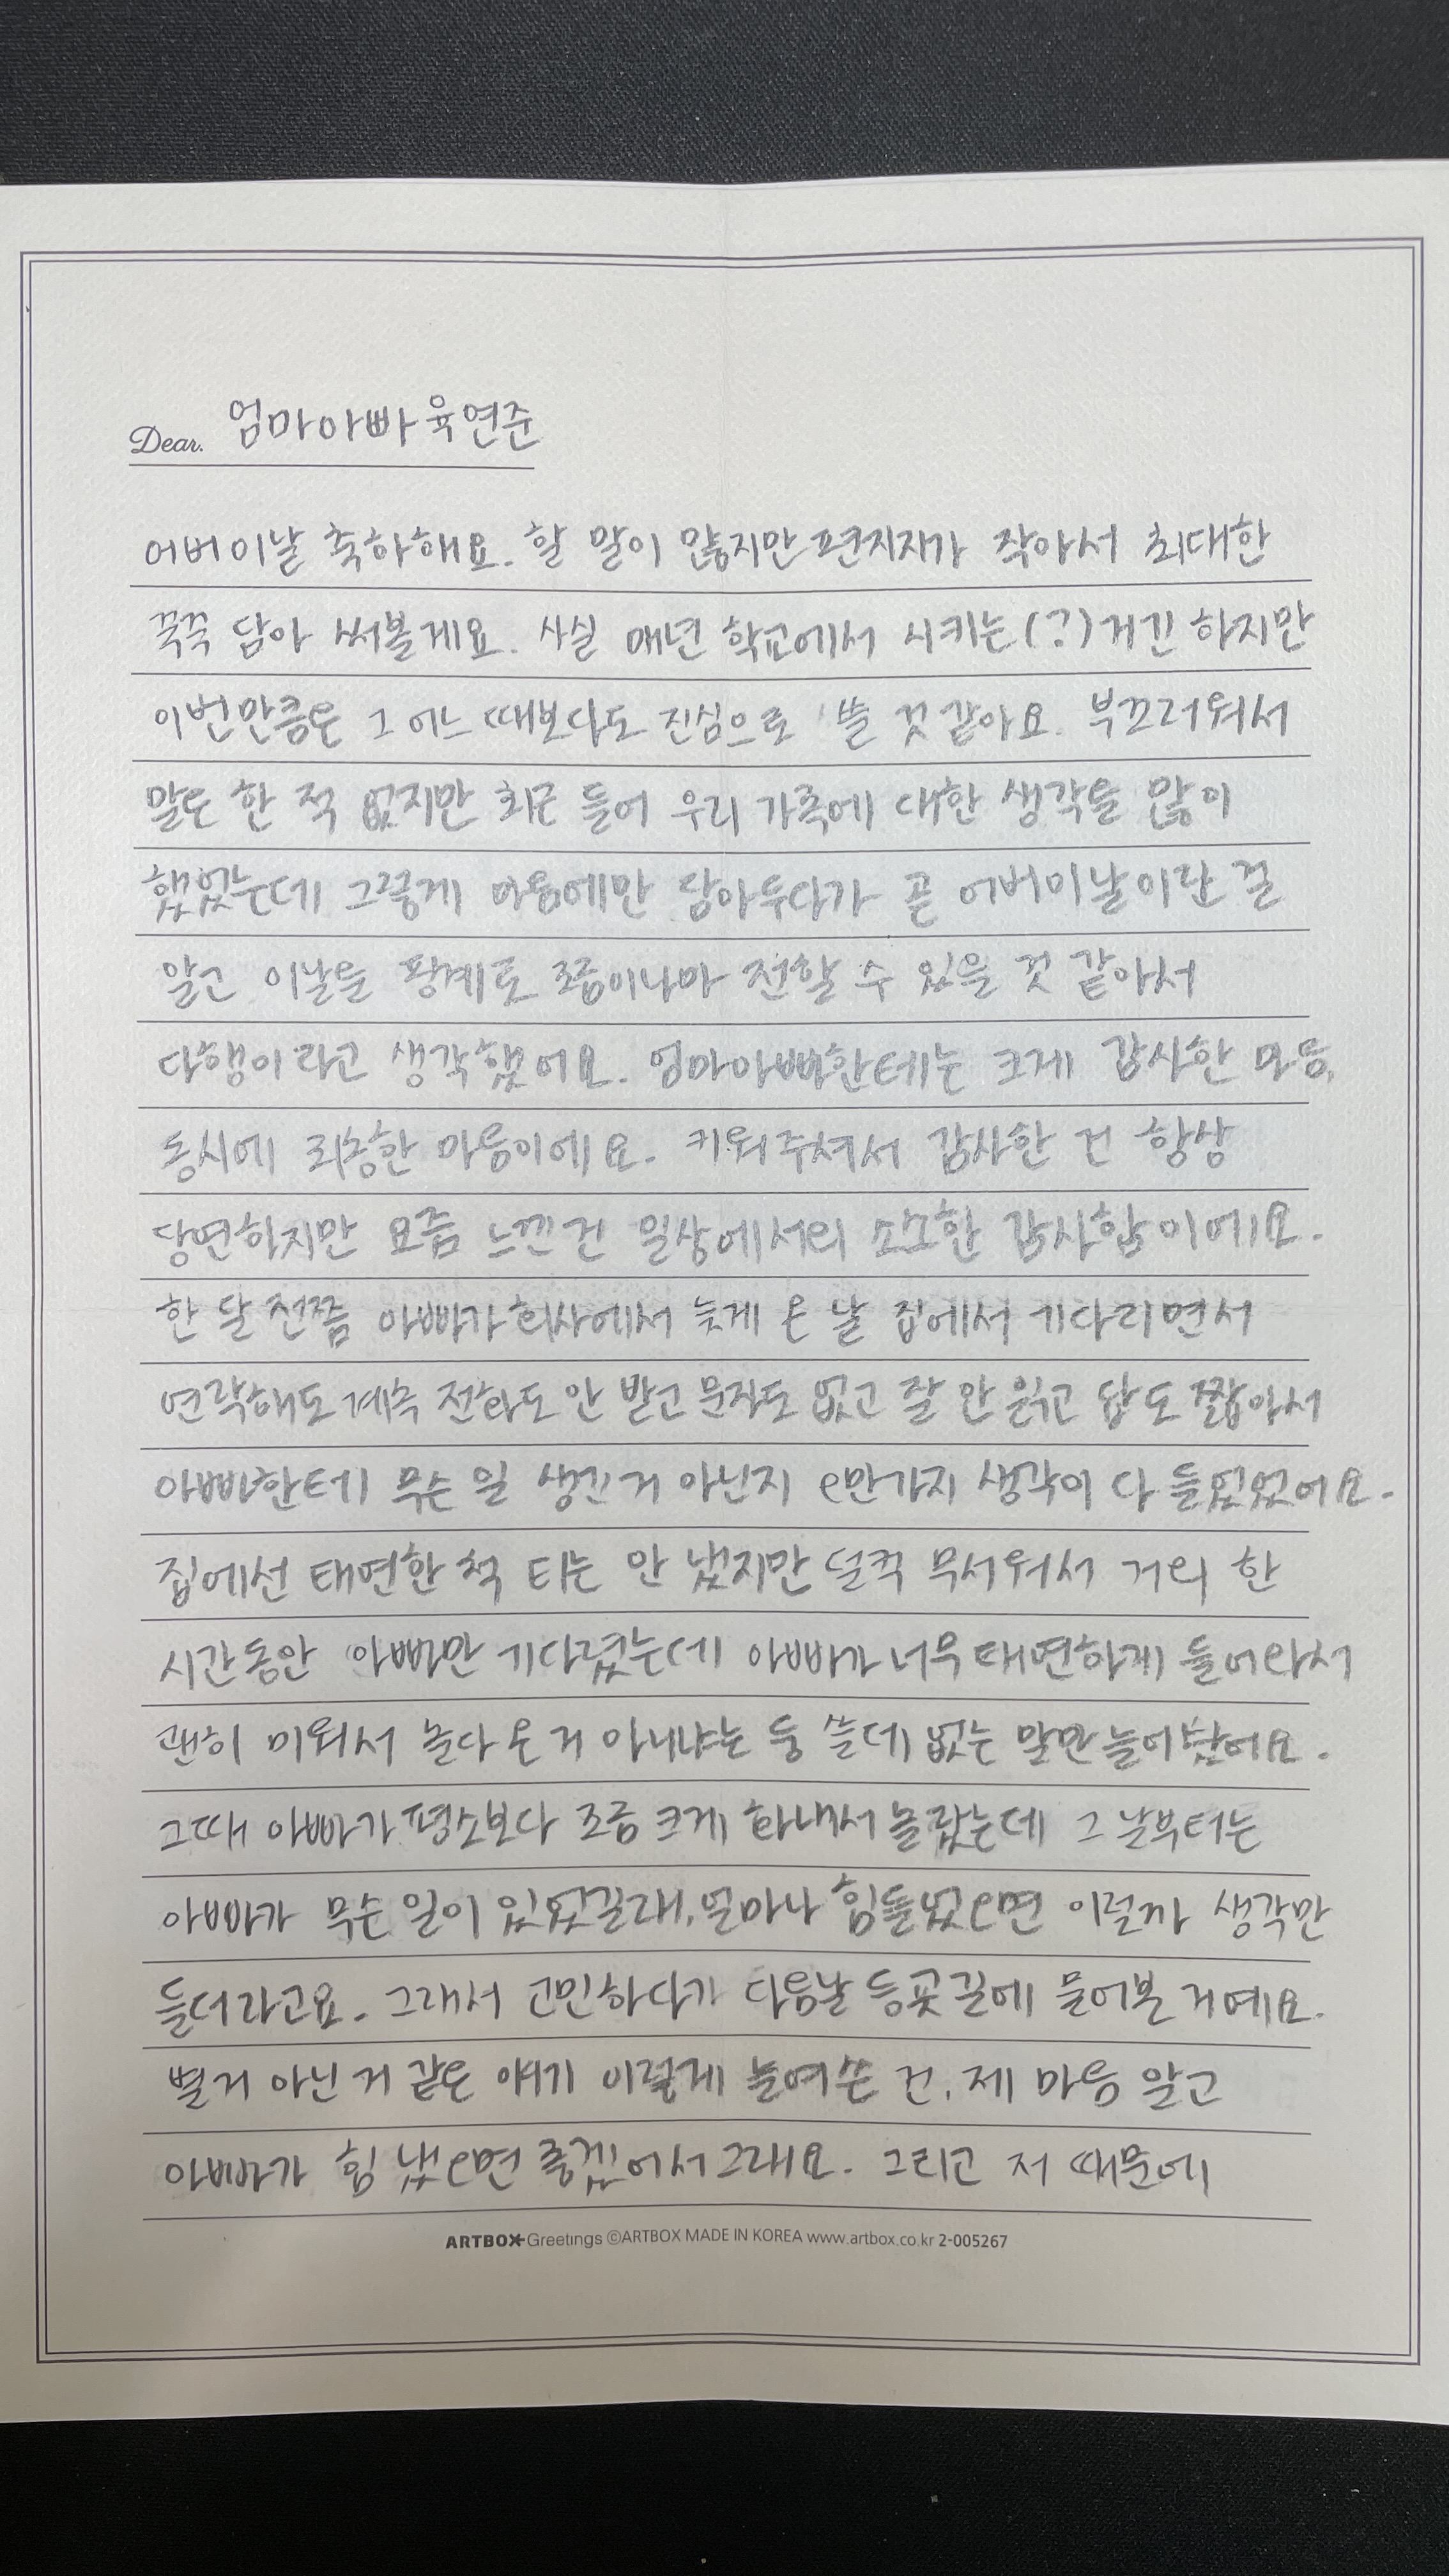 Dear. 엄마아빠 육연준
어버이날 축하해요. 할 말이 많지만 편지지가 작아서 최대한
꾹꾹 담아 써볼게요. 사실 매년 학교에서 시키는(?)거긴 하지만
이번만큼은 그 어느 때보다도 진심으로 쓸 것 같아요. 부끄러워서
말도 한 적 없지만 최근 들어 우리 가족에 대한 생각을 많이
했었는데 그렇게 마음에만 담아두다가 곧 어버이날이란 걸
알고 이날을 핑계로 조금이나마 전할 수 있을 것 같아서
다행이라고 생각했어요. 엄마아빠한테는 크게 감사한 마음,
동시에 죄송한 마음이에요. 키워주셔서 감사한 건 항상
당연하지만 요즘 느낀 건 일상에서의 소소한 감사함이에요.
한 달 전쯤 아빠가 회사에서 늦게 온 날 집에서 기다리면서
연락해도 계속 전화도 안 받고 문자도 없고 잘 안 읽고 답도 짧아서
아빠한테 무슨 일 생긴 거 아닌지 오만가지 생각이 다 들었었어요.
집에선 태연한 척 티는 안 냈지만 덜컥 무서워서 거의 한
시간동안 아빠만 기다렸는데 아빠가 너무 태연하게 들어와서
괜히 미워서 놀다 온 거 아니냐는 둥 쓸데 없는 말만 늘어놨어요.
그때 아빠가 평소보다 조금 크게 화내서 놀랐는데 그 날부터는
아빠가 무슨 일이 있었길래, 얼마나 힘들었으면 이럴까 생각만
들더라고요. 그래서 고민하다가 다음날 등굣길에 물어본 거예요.
별거 아닌 거 같은 얘기 이렇게 늘여쓴 건, 제 마음 알고
아빠가 힘 냈으면 좋겠어서 그래요. 그리고 저 때문에
ARTBOX Greetings ©ARTBOX MADE IN KOREA www.artbox.co.kr 2-005267